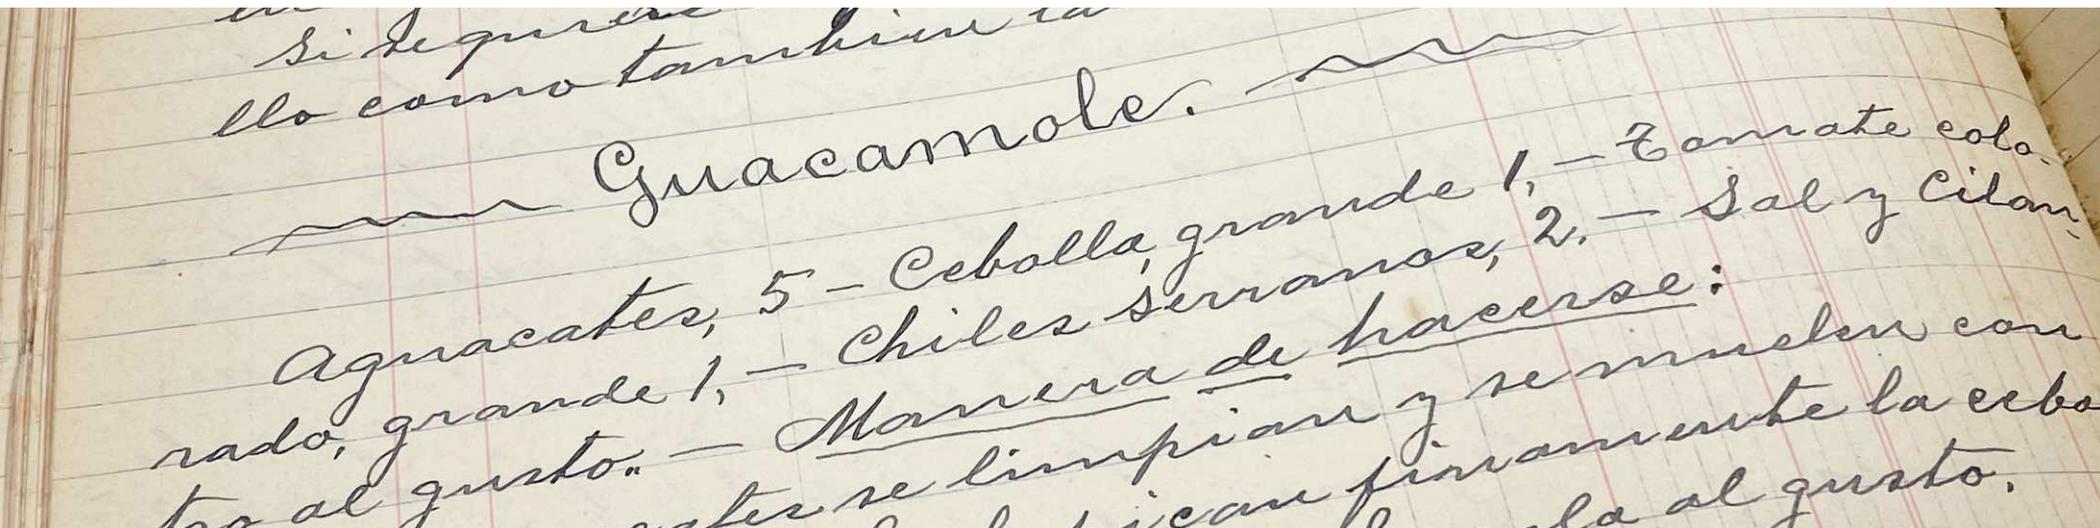 si se quiere
llo como tambien la
Guacamole.
Aguacates, 5 - Cebolla, grande 1, - Tomate colo-
rado, grande 1, - Chiles serranos, 2. - Sal y Cilan-
tro al gusto.. - Manera de hacerse:
se limpian y se muelen con
pican finamente la cebo
al gusto.